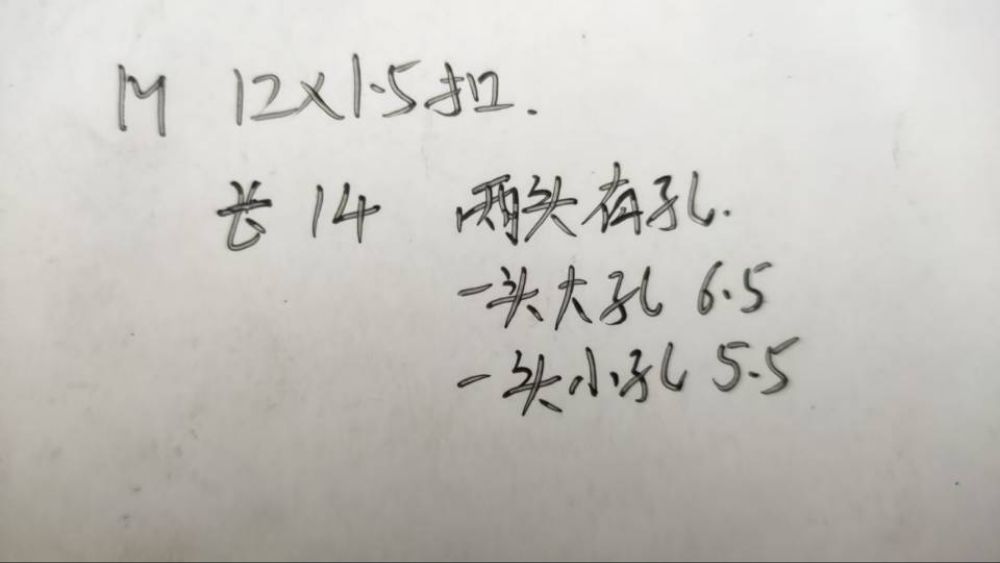 M 12×1.5扣.
长 14 两头有孔.
一头大孔 6.5
一头小孔 5.5